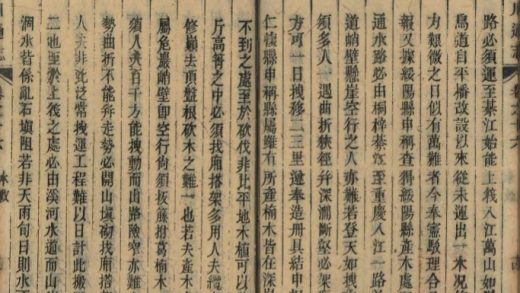 路必須運至綦江始能上筏入江萬山如
鳥道自平橋改設以來從未運出一木况
方艱微之日似有萬難者今奉憲駁理合
報又據綏陽縣申稱查得綏陽縣產木處
通水路必由桐梓綦江至重慶入江一路
道峭壁縣崖空行之人亦難若登天如拽
須多人一遇曲折狹徑并深澗斷壑必架
方可一日拽移二三里遵奉造冊具結申
仁懷縣申稱縣屬雖有所產楠木皆在深
不到之處至於砍伐非比平地木植可以
斤高箐之中必須找廂搭架多用人夫纜
修顛去頂盤根砍木之難一也若夫產木
屬危巖峭壁卽空行尚須扳藤拊葛楠木
須人夫百千方能拽動而出路險窄亦難
勢曲折不能奔走勢必開山填砌找廂搭
人夫非比泛常拽運工程難以日計此搬
二也至於上筏之處必由溪河水道而山
澗水皆係亂石塡阻若非天雨旬日則水